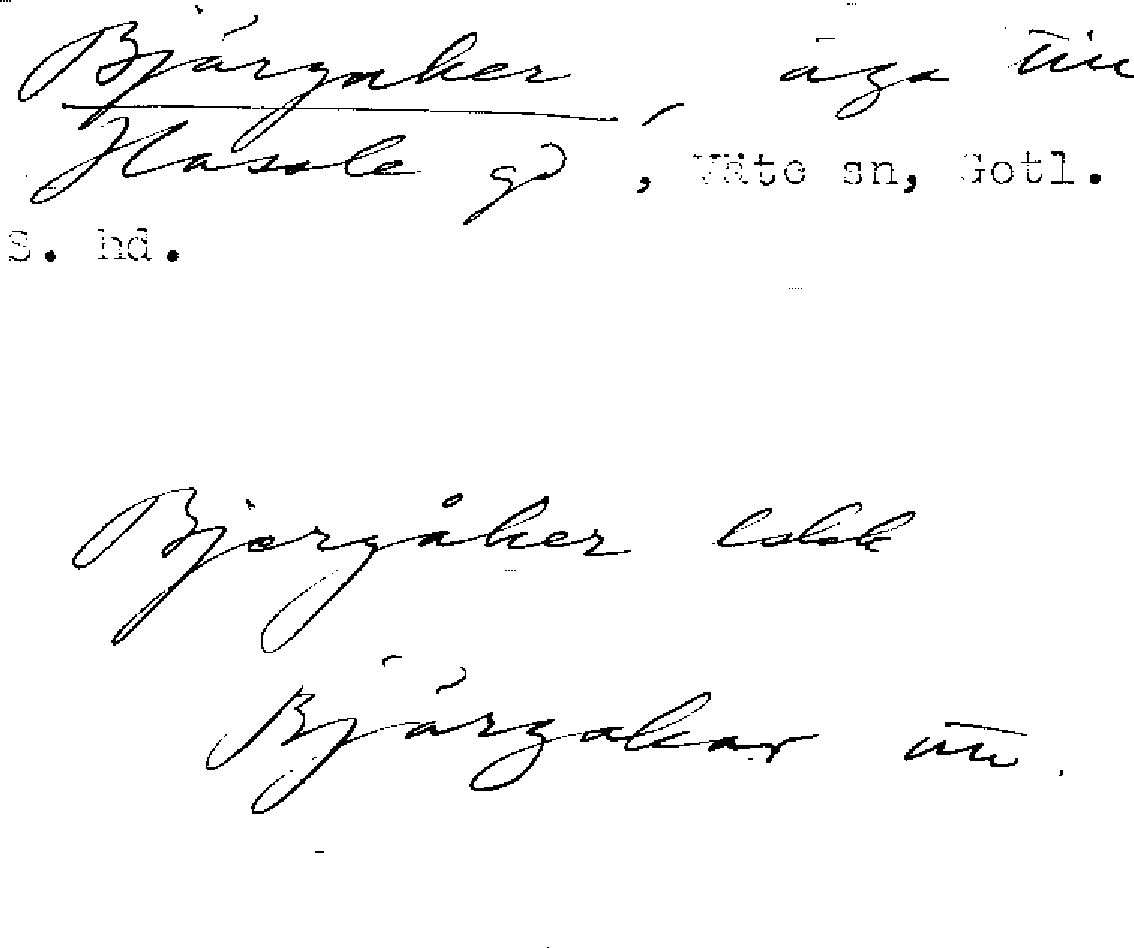 Bjärgaker, äga till
Hassle gd, Väte sn, Gotl.
S. hd.
Bjergåker
Bjärgakar